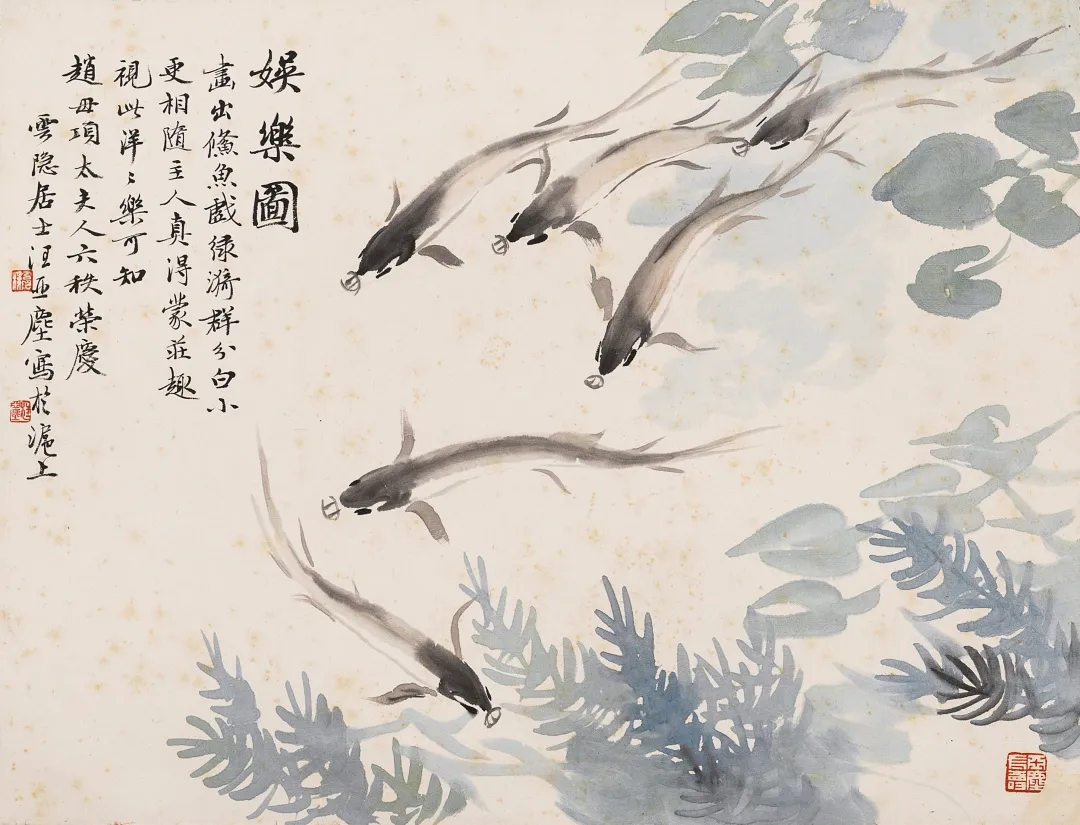 娛樂圖
畫出鯈魚戲綠漪群分白小
更相隨主人真得蒙莊趣
視此洋〻樂可知
趙母項太夫人六秩榮慶
雲隐居士汪亞塵寫於滬上
亞塵
長壽